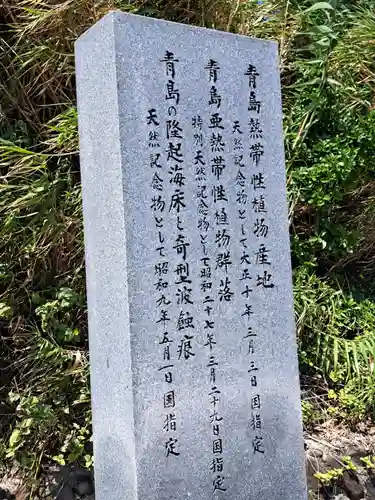 青島熱帯性植物産地
天然記念物として大正十年三月三日国指定
青島亜熱帯性植物群落
特別天然記念物として昭和二十七年三月二十九日国指定
青島の隆起海床と奇型波蝕痕
天然記念物として昭和九年五月一日国指定